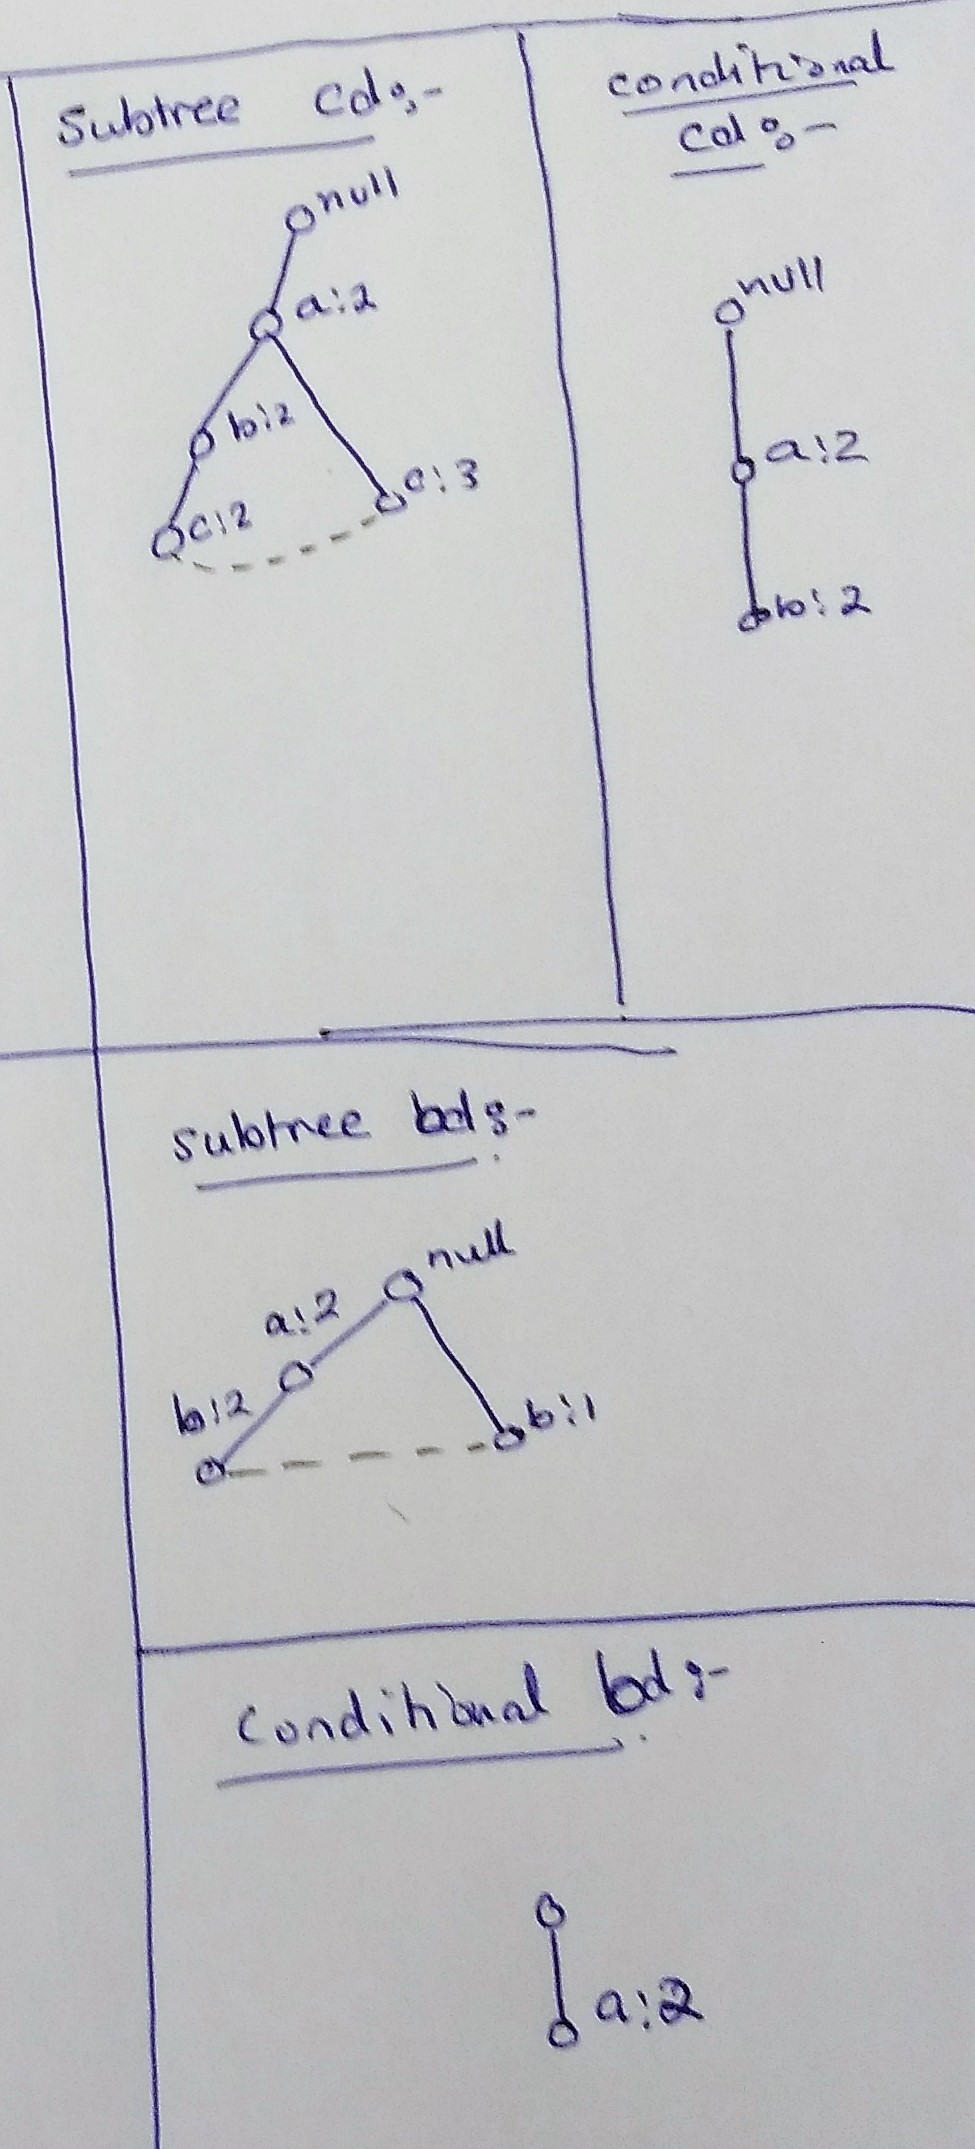 Subtree Cd:-
null
a:2
b:2
c:3
c:2
conditional
Cd:-
null
a:2
b:2
subtree bd:-
null
a:2
b:2
b:1
Conditional bd:-
a:2